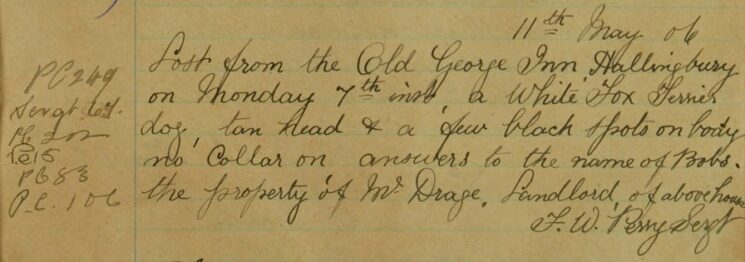 11th May 06
Lost from the Old George Inn Hallingbury
on Monday 7th inst, a White Fox Terrier
dog, tan head & a few black spots on body
no Collar on answers to the name of Bobs.
the property of Mr Drage, Landlord, of above house
F. W. Perry Sergt
PC 249
Sergt
PC 202
PC 15
PC 83
P.C. 106